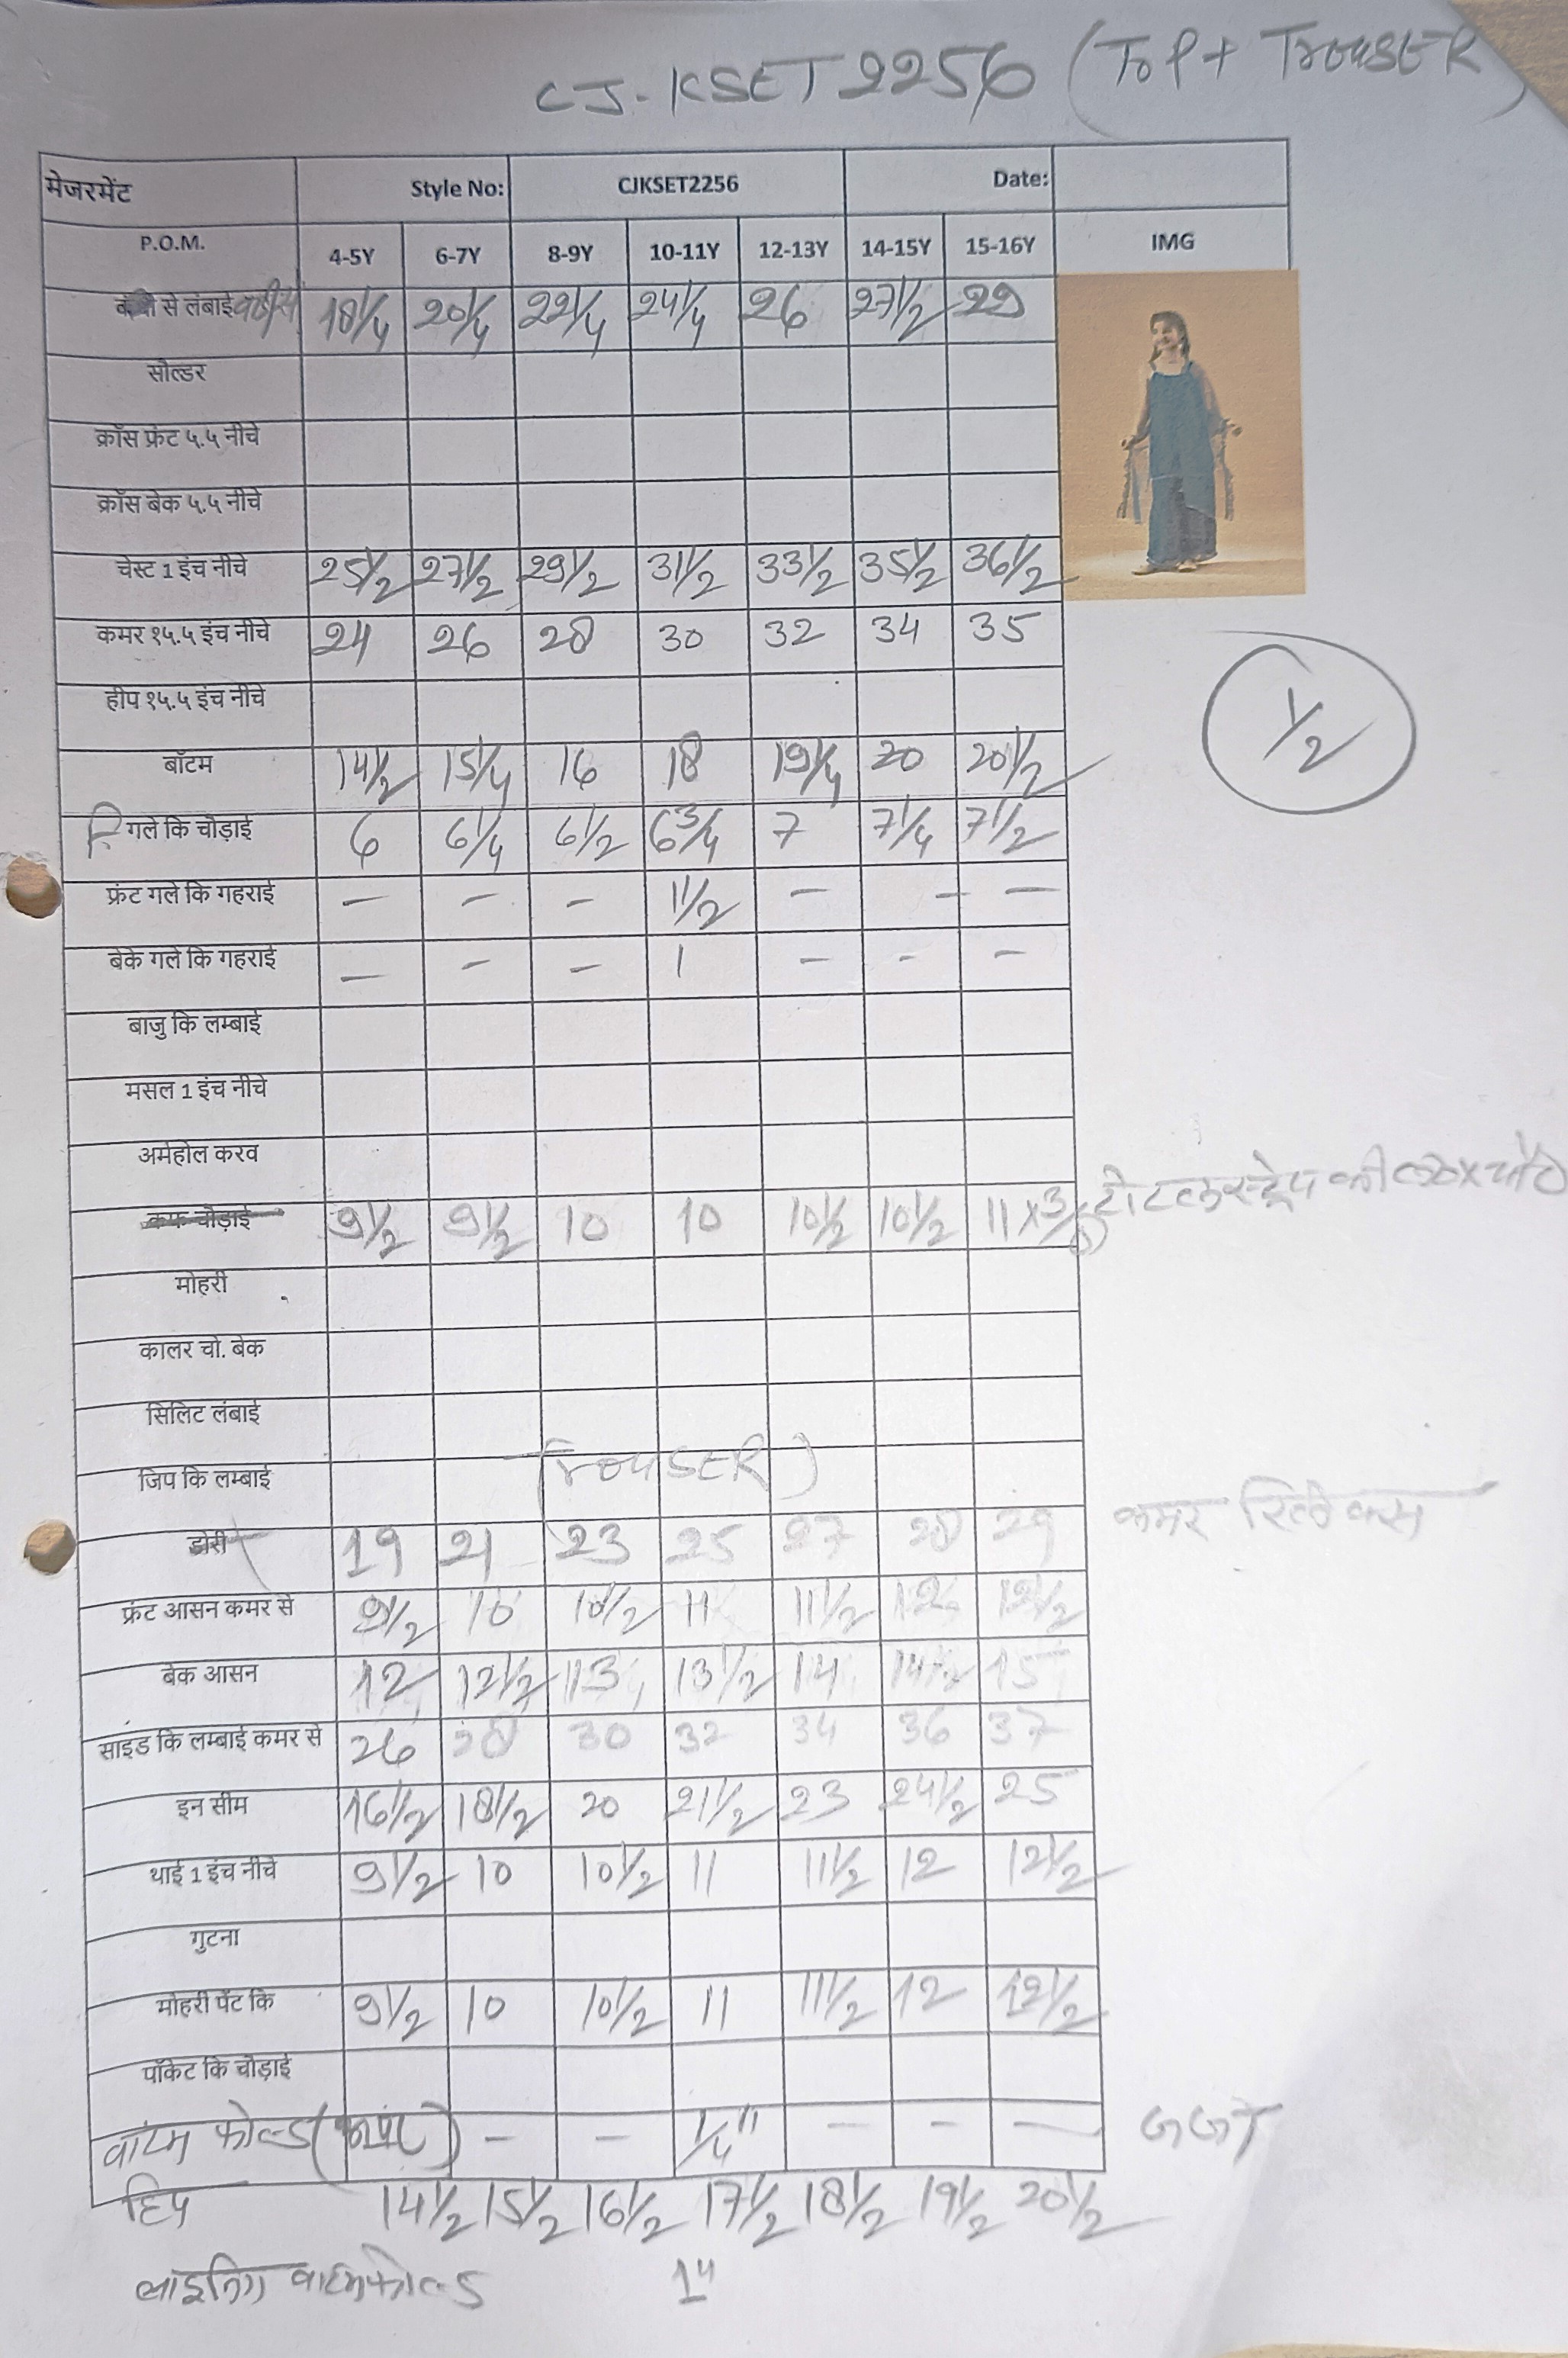 CJ-KSET2256 (TOP+ TROUSER)
मेजरमेंट Style No: CJKSET2256 Date:
P.O.M. 4-5Y 6-7Y 8-9Y 10-11Y 12-13Y 14-15Y 15-16Y IMG
से लंबाई 18 1/4 20 1/4 22 1/4 24 1/4 26 27 1/2 29
सोल्डर
क्रॉस फ्रंट ५.५ नीचे
क्रॉस बेक ५.५ नीचे
चेस्ट 1 इंच नीचे 25 1/2 27 1/2 29 1/2 31 1/2 33 1/2 35 1/2 36 1/2
कमर १५.५ इंच नीचे 24 26 28 30 32 34 35
हीप १५.५ इंच नीचे
1/2
बॉटम 14 1/2 15 1/4 16 18 19 1/4 20 20 1/2
गले कि चौड़ाई 6 6 1/4 6 1/2 6 3/4 7 7 1/4 7 1/2
फ्रंट गले कि गहराई — — — 1 1/2 — — —
बेके गले कि गहराई — — — 1 — — —
बाजु कि लम्बाई
मसल 1 इंच नीचे
अर्महोल करव
कफ चौड़ाई 9 1/2 9 1/2 10 10 10 1/2 10 1/2 11 x 3/8 टोटल स्ट्रेप की
मोहरी
कालर चो. बेक
सिलिट लंबाई
जिप कि लम्बाई
(TROUSER)
डोरी 19 21 23 25 27 28 29 कमर रिलेक्स
फ्रंट आसन कमर से 9 1/2 10 10 1/2 11 11 1/2 12 12 1/2
बेक आसन 12 12 1/2 13 13 1/2 14 14 1/2 15
साइड कि लम्बाई कमर से 26 28 30 32 34 36 37
इन सीम 16 1/2 18 1/2 20 21 1/2 23 24 1/2 25
थाई 1 इंच नीचे 9 1/2 10 10 1/2 11 11 1/2 12 12 1/2
गुटना
मोहरी पेंट कि 9 1/2 10 10 1/2 11 11 1/2 12 12 1/2
पॉकेट कि चौड़ाई
वाटम फोल्ड — — 1/4" — — —
हिप 14 1/2 15 1/2 16 1/2 17 1/2 18 1/2 19 1/2 20 1/2
लाइनिंग वाटम फोल्ड 1"